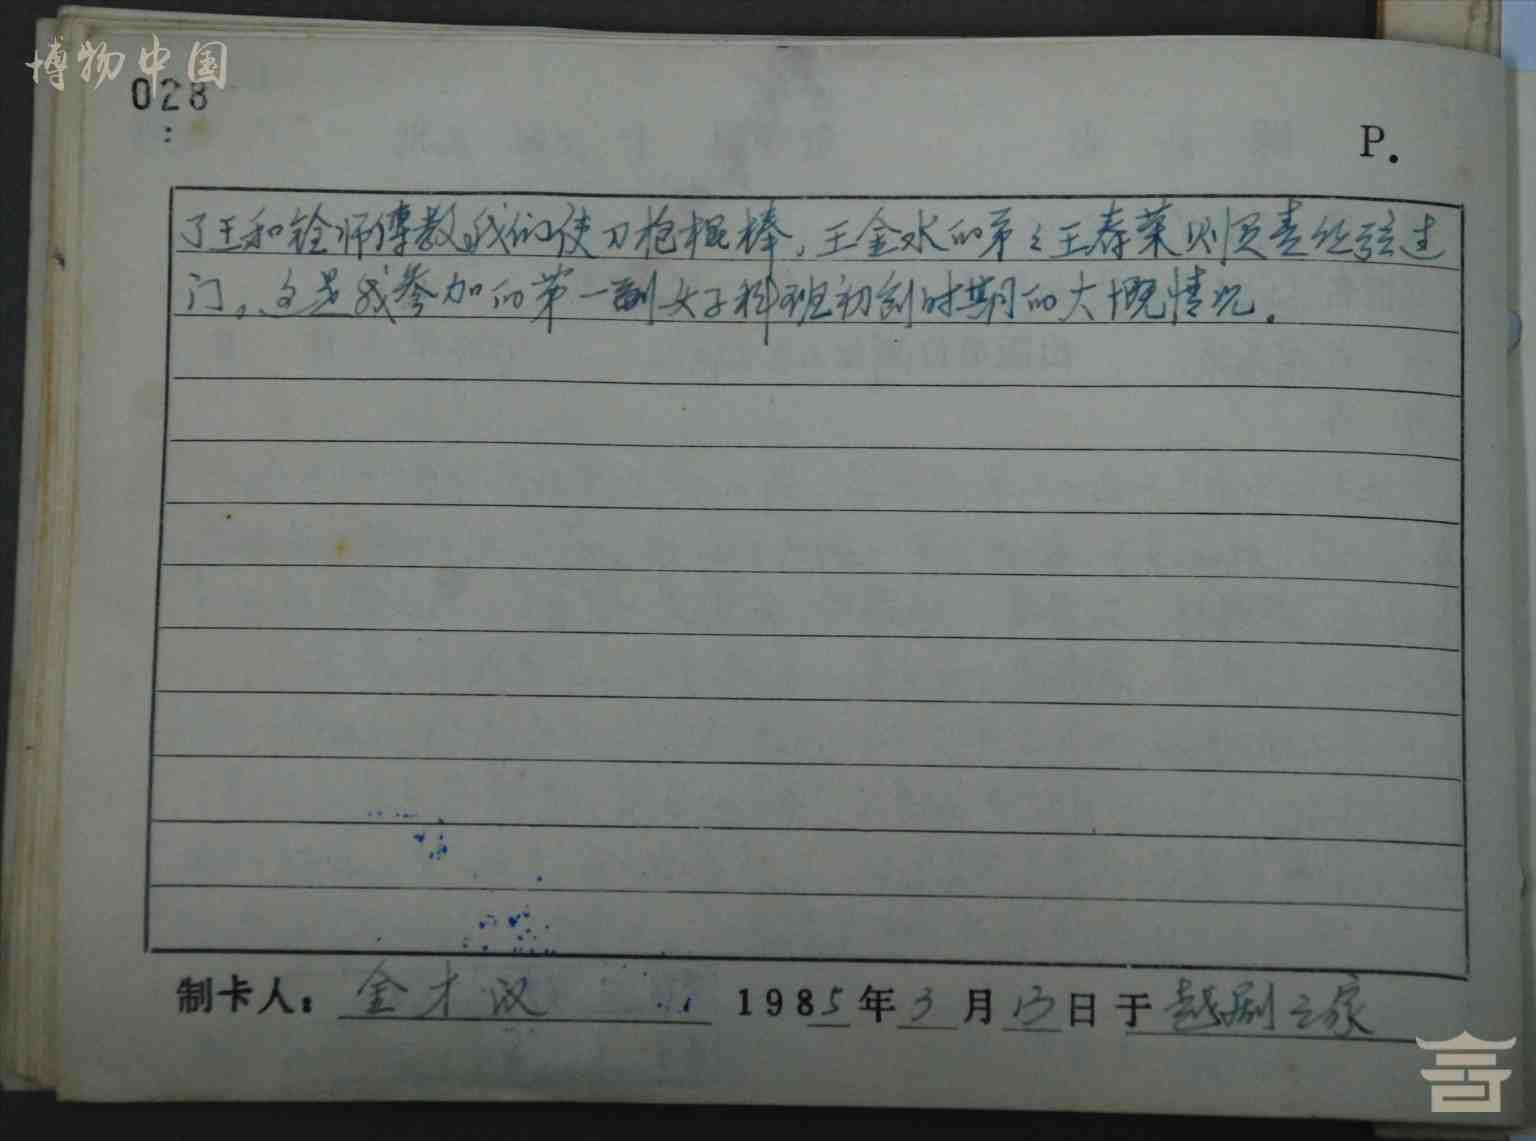 博物中国
028
P.
了王和铨师傅教我们使刀枪棍棒，王金水的第之王春荣则负责丝弦过
门。这是我参加的第一副女子科班初创时期的大概情况。
制卡人： 金才汉 1985年3月13日于越剧之家